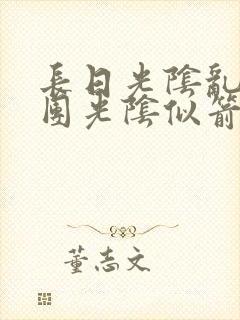 長日光陰亂
團光陰似箭
董志文